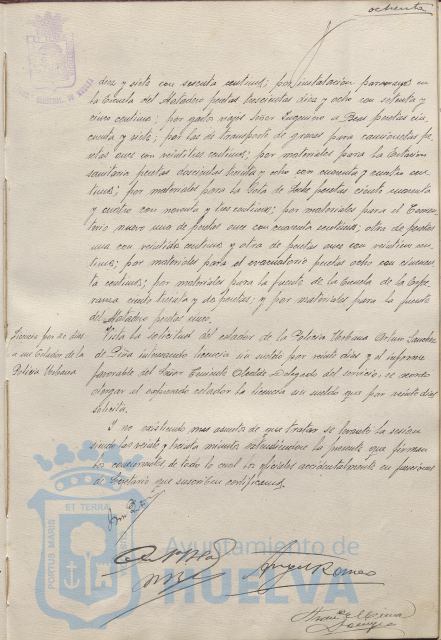 ochenta
diez y siete con sesenta centimos; por instalación pararrayos en
la Escuela del Matadero pesetas trescientas diez y ocho con setenta y
cinco centimos; por gastos viajes Señor Ingeniero a Beas pesetas cin-
cuenta y siete; por los de transporte de grasas para camionetas pe-
setas once con veintitres centimos; por materiales para la Estación
sanitaria pesetas doscientas treinta y ocho con cuarenta y cuatro cen-
timos; por materiales para la Gota de Leche pesetas ciento cuarenta
y cuatro con noventa y tres centimos; por materiales para el Cemen-
terio nuevo una de pesetas once con cuarenta centimos, otra de pesetas
una con veintidos centimos y otra de pesetas once con veintiun cen-
timos; por materiales para el evacuatorio pesetas ocho con cincuen-
ta centimos; por materiales para la fuente de la Escuela de la Espe-
ranza ciento treinta y dos pesetas; y por materiales para la fuente
del Matadero pesetas once.
Licencia por 20 días
a un Celador de la
Policia Urbana
Vista la solicitud del celador de la Policia Urbana Arturo Sanchez
de Piña interesando licencia sin sueldo por veinte dias y el informe
favorable del Señor Teniente Alcalde Delegado del servicio, se acordó
otorgar al expresado celador la licencia sin sueldo que por veinte dias
solicita.
Y no existiendo mas asuntos de que tratar se levantó la sesion
siendo las veinte y treinta minutos extendiendose la presente que firman
los concurrentes, de todo lo cual los oficiales accidentalmente en funciones
de Secretario que suscriben certificamos.
Angel Romeo
PORTUS MARIS
ET TERRAE
Ayuntamiento de
HUELVA